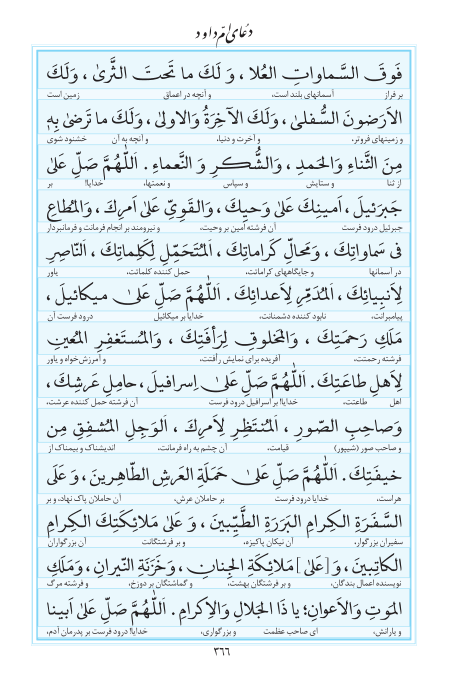 دعای امّ داود
فَوقَ السَّماواتِ العُلا ، وَ لَكَ ما تَحتَ الثَّرىٰ ، وَلَكَ
بر فراز آسمانهای بلند است، و آنچه در اعماق زمین است
الاَرَضونَ السُّفلىٰ ، وَلَكَ الآخِرَةُ وَالاولىٰ ، وَلَكَ ما تَرضىٰ بِهٖ
و زمینهای فروتر، و آخرت و دنیا، و آنچه به آن خشنود شوی
مِنَ الثَّناءِ وَالحَمدِ ، وَالشُّكرِ وَ النَّعماءِ . اَللّٰهُمَّ صَلِّ عَلىٰ
از ثنا و ستایش و سپاس و نعمتها، خدایا! بر
جَبرَئيلَ ، اَمينِكَ عَلىٰ وَحيِكَ ، وَالقَوِيِّ عَلىٰ اَمرِكَ ، وَالمُطاعِ
جبرئیل درود فرست آن فرشته امین بر وحیت، و نیرومند بر انجام فرمانت و فرمانبردار
فى سَماواتِكَ ، وَمَحالِّ كَراماتِكَ ، اَلمُتَحَمِّلِ لِكَلِماتِكَ ، اَلنّاصِرِ
در آسمانها و جایگاههای کرامانت، حمل کننده کلمانت، یاور
لِاَنبِيائِكَ ، اَلمُدَمِّرِ لِاَعدائِكَ . اَللّٰهُمَّ صَلِّ عَلىٰ ميكائيلَ ،
پیامبرانت، نابود کننده دشمنانت، خدایا بر میکائیل درود فرست آن
مَلَكِ رَحمَتِكَ ، وَالمَخلوقِ لِرَأفَتِكَ ، وَالمُستَغفِرِ المُعينِ
فرشته رحمتت، آفریده برای نمایش رأفتت، و آمرزش‌خواه و یاور
لِاَهلِ طاعَتِكَ . اَللّٰهُمَّ صَلِّ عَلىٰ اِسرافيلَ ، حامِلِ عَرشِكَ ،
اهل طاعتت، خدایا! بر اسرافیل درود فرست آن فرشته حمل کننده عرشت،
وَصاحِبِ الصّورِ ، اَلمُنتَظِرِ لِاَمرِكَ ، اَلوَجِلِ المُشفِقِ مِن
و صاحب صور (شیپور) قیامت، آن چشم به راه فرمانت، اندیشناک و بیمناک از
خيفَتِكَ . اَللّٰهُمَّ صَلِّ عَلىٰ حَمَلَةِ العَرشِ الطّاهِرينَ ، وَ عَلَى
هراست، خدایا درود فرست بر حاملان عرش، آن حاملان پاک نهاد، و بر
السَّفَرَةِ الكِرامِ البَرَرَةِ الطَّيِّبينَ ، وَ عَلىٰ مَلائِكَتِكَ الكِرامِ
سفیران بزرگوار، آن نیکان پاکیزه، و بر فرشتگانت آن بزرگواران
الكاتِبينَ ، وَ[عَلىٰ] مَلائِكَةِ الجِنانِ ، وَخَزَنَةِ النّيرانِ ، وَمَلَكِ
نویسنده اعمال بندگان، و بر فرشتگان بهشت، و گماشتگان بر دوزخ، و فرشته مرگ
المَوتِ وَالاَعوانِ؛ يا ذَا الجَلالِ وَالاِكرامِ . اَللّٰهُمَّ صَلِّ عَلىٰ اَبينا
و یارانش، ای صاحب عظمت و بزرگواری، خدایا! درود فرست بر پدرمان آدم،
٣٦٦